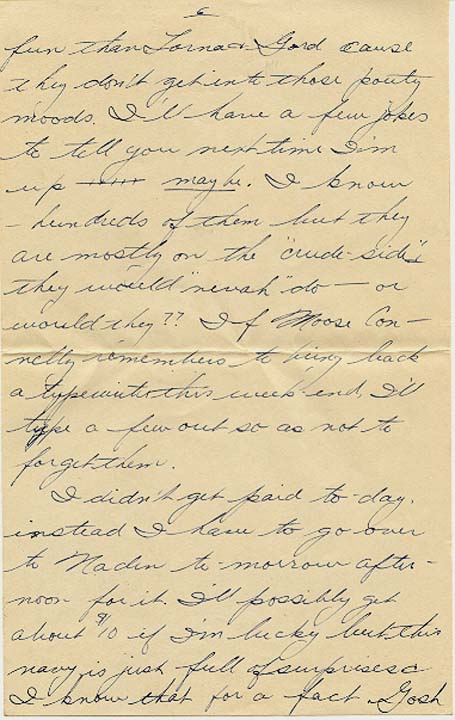 6
fun than Lorna & Gord cause
they don't get into those 'pouty
moods. I'll have a few jokes
to tell you next time I'm
up maybe. I know
- hundreds of them but they
are mostly on the "crude-side"
they would "nevah" do — or
would they?? If Moose Con-
nelly remembers to bring back
a typewriter this week-end, I'll
type a few out so as not to
forget them.
I didn't get paid to-day,
instead I have to go over
to Naden to-morrow after-
noon for it. I'll possibly get
about $10 if I'm lucky but this
navy is just full of surprises &
I know that for a fact. Gosh